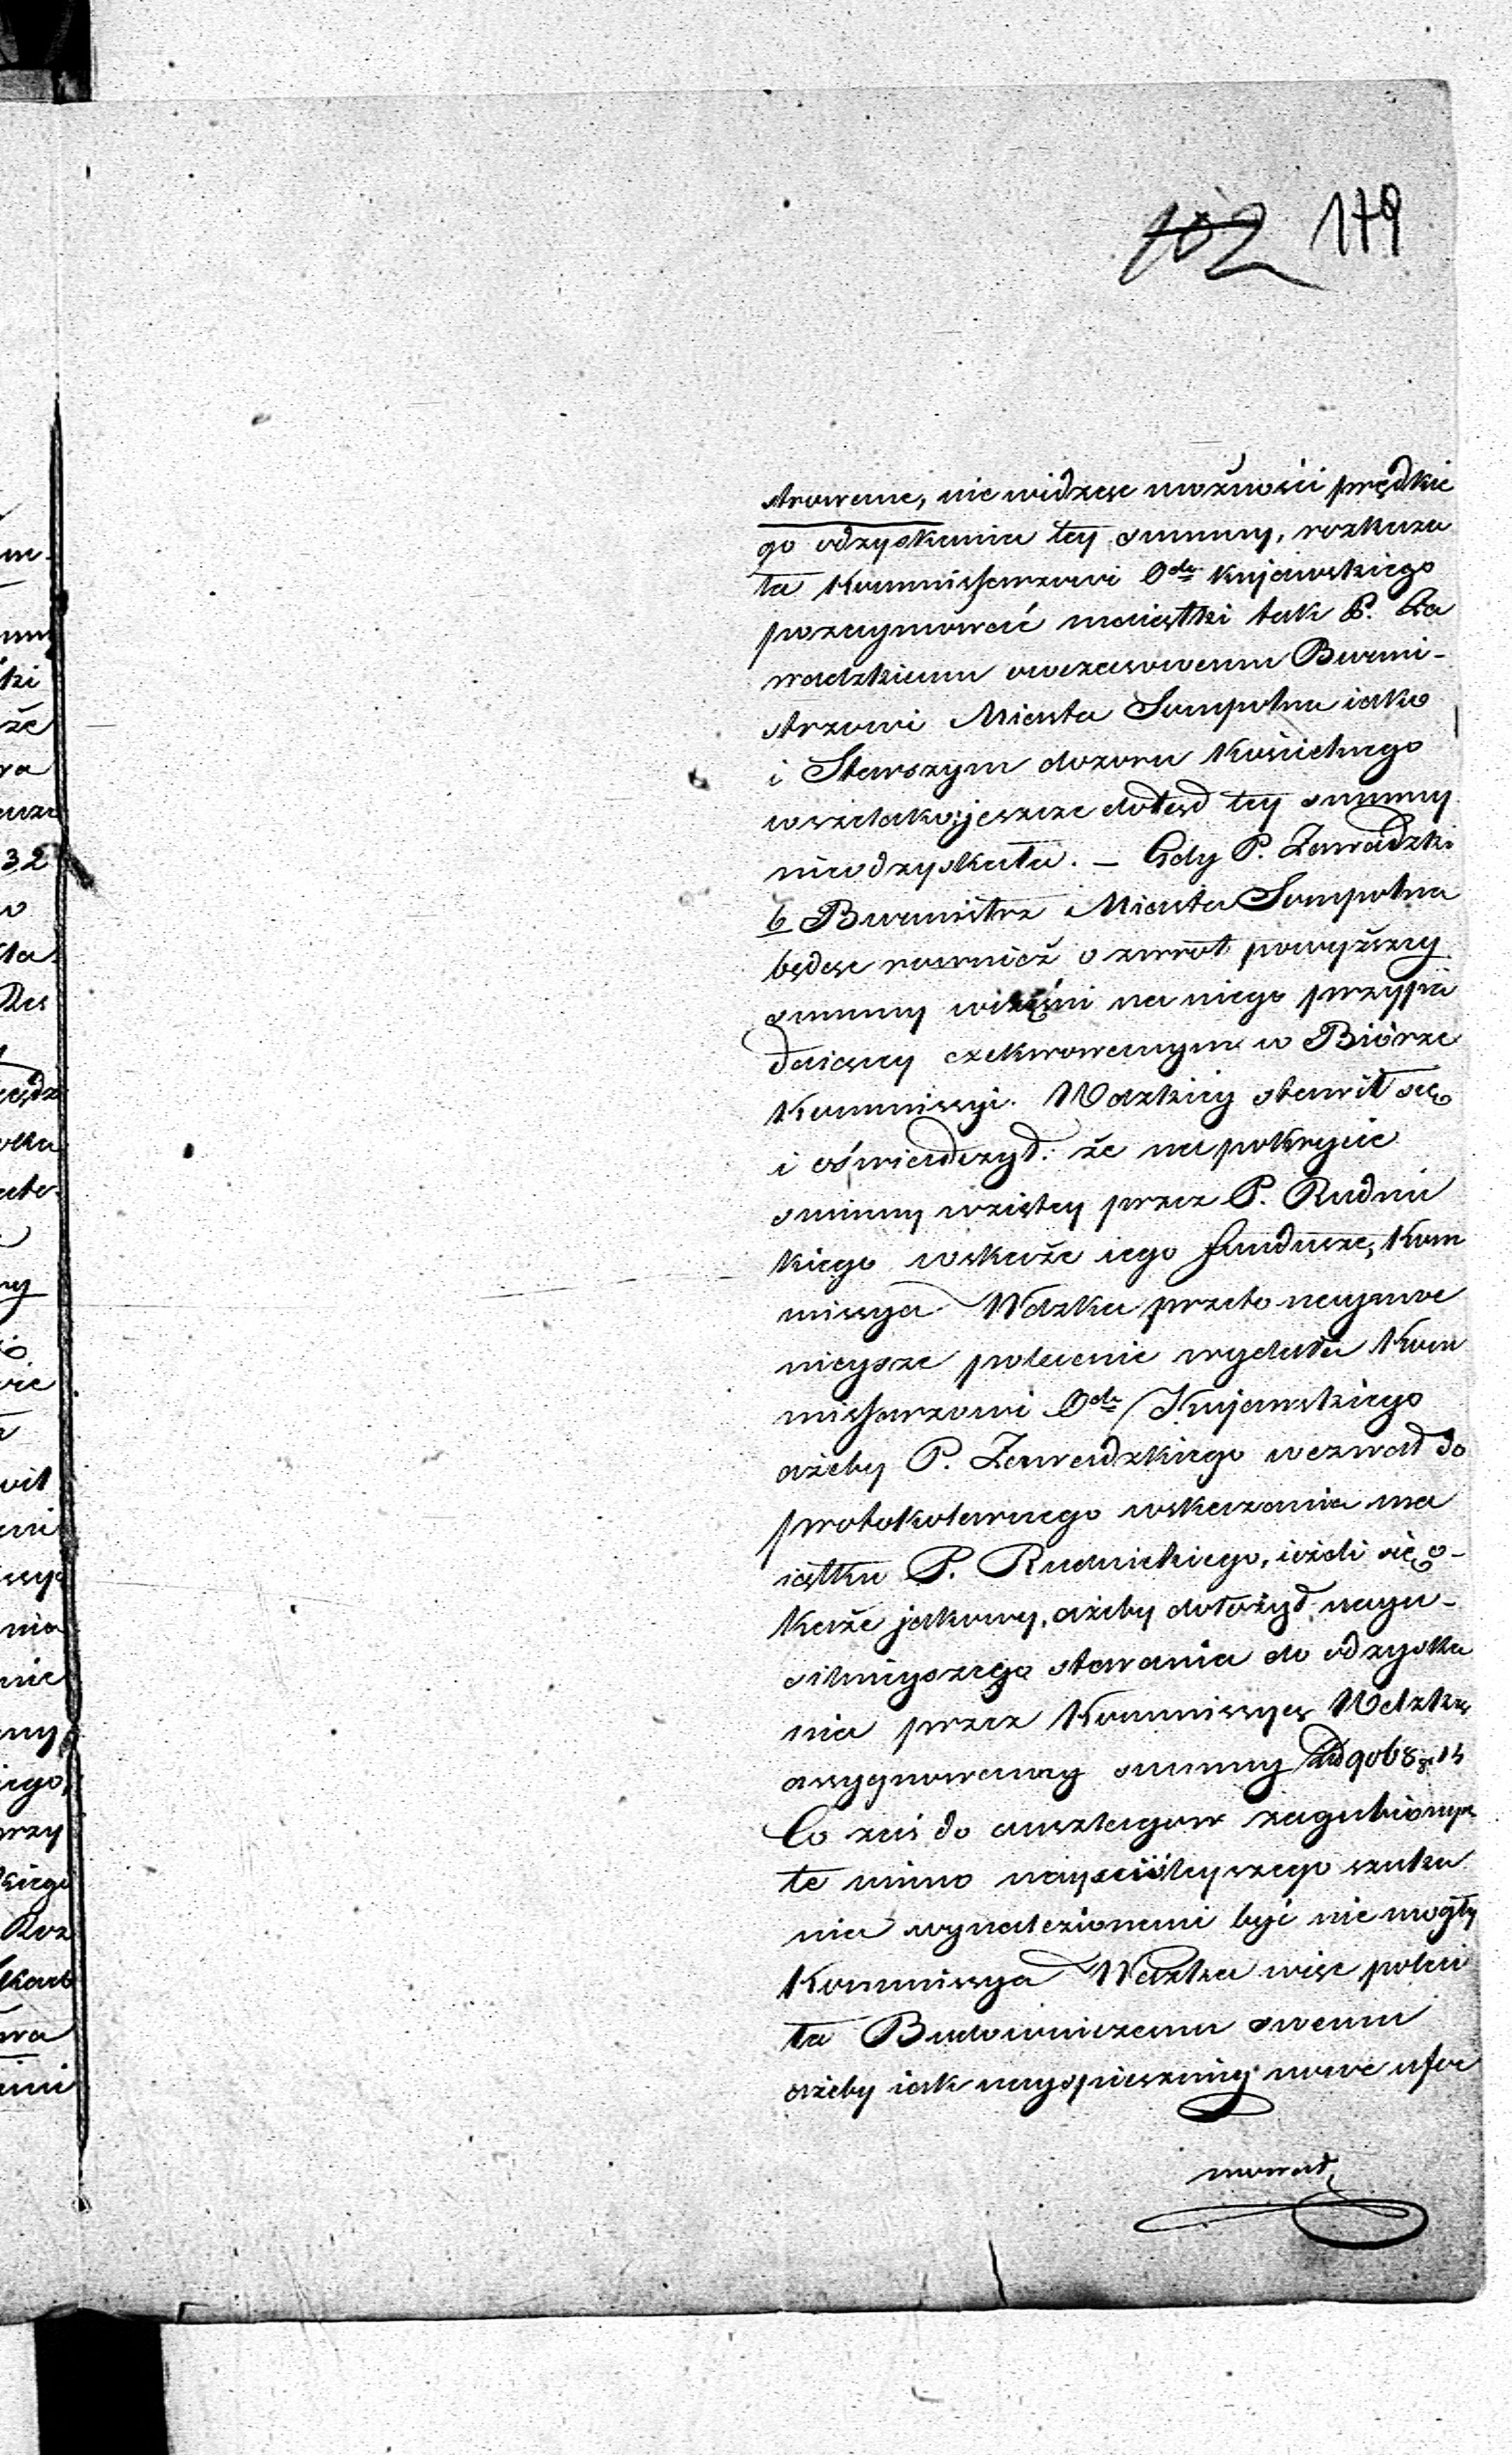 102 179
strowane, nie widząc możności prędkie
go odzyskania tey summy, rozkaza
ła Kommissarzowi Odu Kujawskiego
pozaymować maiątki tak P. Za
wadzkiemu owczasowemu Burmi-
strzowi Miasta Sompolna iako
i Starszym dozoru Kościelnego
wszelako jeszcze dotąd tey summy
nieodzyskała. – Gdy P. Zawadzki
b Burmistrz Miasta Sompolna
będąc rownież o zwrot powyższey
summy w części na niego przypa
daiącey exekwowanym w Biórze
Kommissyi Wdzkiey stawił się
i oświadczył: że na pokrycie
summy wziętey przez P. Rudnic
kiego wskaże iego fundusze, Kom
missya Wdzka przeto
nieysze polecenie wydała Kom
missarzowi Odu Kujawskiego
ażeby P. Zawadzkiego wezwał do
protokolarnego wskazania ma
iątku P. Rudnickiego, ieżeli się o-
każe jakowy, ażeby dołożył nayu-
silnieyszego starania do odzyska
nia przez Kommissyą Wdzką
assygnowaney summy 9068
Co zaś do anszlagow zagubionych
te mimo nayściśleyszego szuka
nia wynalezionemi być nie mogły
Kommissya Wdzka więc poleci
ła Budowniczemu swemu
ażeby iak nayspieszniey nowe ufor
mował,